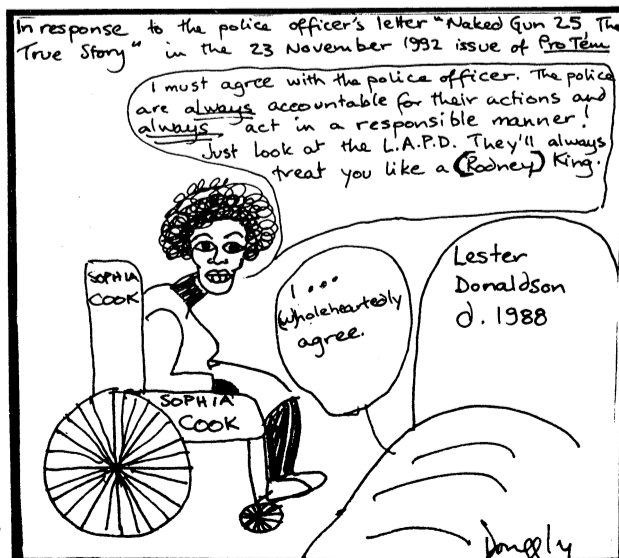 In response to the police officer's letter "Naked Gun 25 The
True Story" in the 23 November 1992 issue of Pro Tem
I must agree with the police officer. The police
are always accountable for their actions and
always act in a responsible manner!
Just look at the L.A.P.D. They'll always
treat you like a (Rodney) King.
SOPHIA
COOK
SOPHIA
COOK
I...
(w)holeheartedly
agree.
Lester
Donaldson
d. 1988